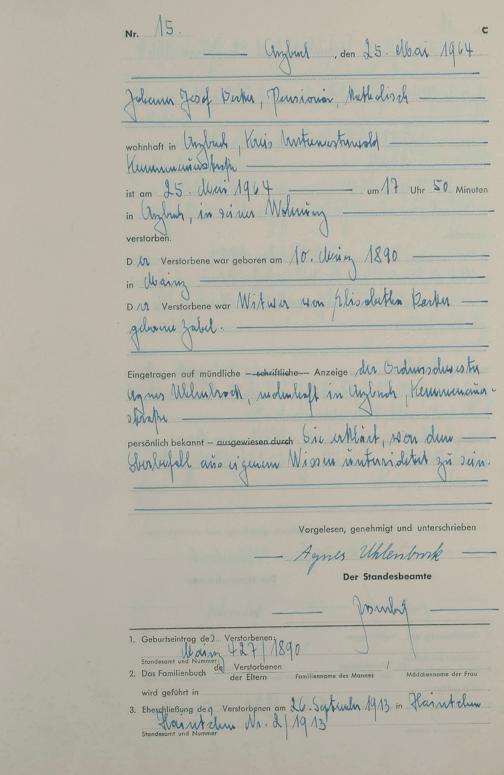 Nr. 15. C
Arzbach, den 25. Mai 1964
Johann Josef Becker, Pensionär, katholisch
wohnhaft in Arzbach, Kreis Unterwesterwald
ist am 25. Mai 1964 um 17 Uhr 50 Minuten
in Arzbach, in seiner Wohnung
verstorben.
Der Verstorbene war geboren am 10. März 1890
in Mainz
Der Verstorbene war Witwer von Elisabetha Becker
geborene Zabel.
Eingetragen auf mündliche – schriftliche – Anzeige der Ordensschwester
Agnes Uhlenbrock, wohnhaft in Arzbach,
straße
persönlich bekannt – ausgewiesen durch Sie erklärt, von dem
Sterbefall aus eigenem Wissen unterrichtet zu sein.
Vorgelesen, genehmigt und unterschrieben
Agnes Uhlenbrock
Der Standesbeamte
1. Geburtseintrag des Verstorbenen:
Mainz 427/1890
Standesamt und Nummer
2. Das Familienbuch des Verstorbenen /
der Eltern Familienname des Mannes Mädchenname der Frau
wird geführt in
3. Eheschließung des Verstorbenen am 26. September 1913 in Haintchen
Haintchen Nr. 2/1913
Standesamt und Nummer